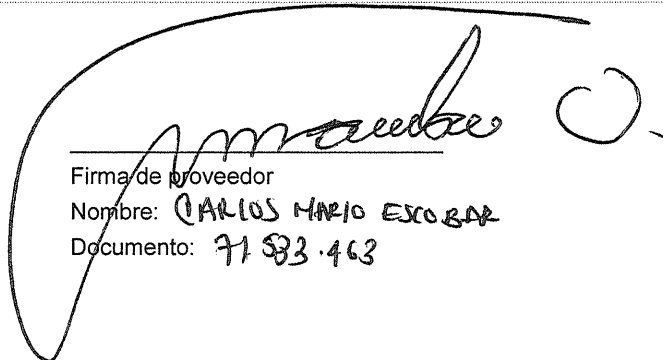 Firma de proveedor
Nombre: CARLOS MARIO ESCOBAR
Documento: 71.583.463